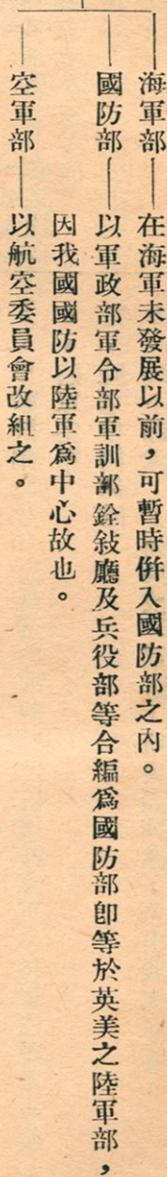 海軍部——在海軍未發展以前，可暫時併入國防部之內。
國防部——以軍政部軍令部軍訓部銓敍廳及兵役部等合編爲國防部卽等於英美之陸軍部，
因我國國防以陸軍爲中心故也。
空軍部——以航空委員會改組之。